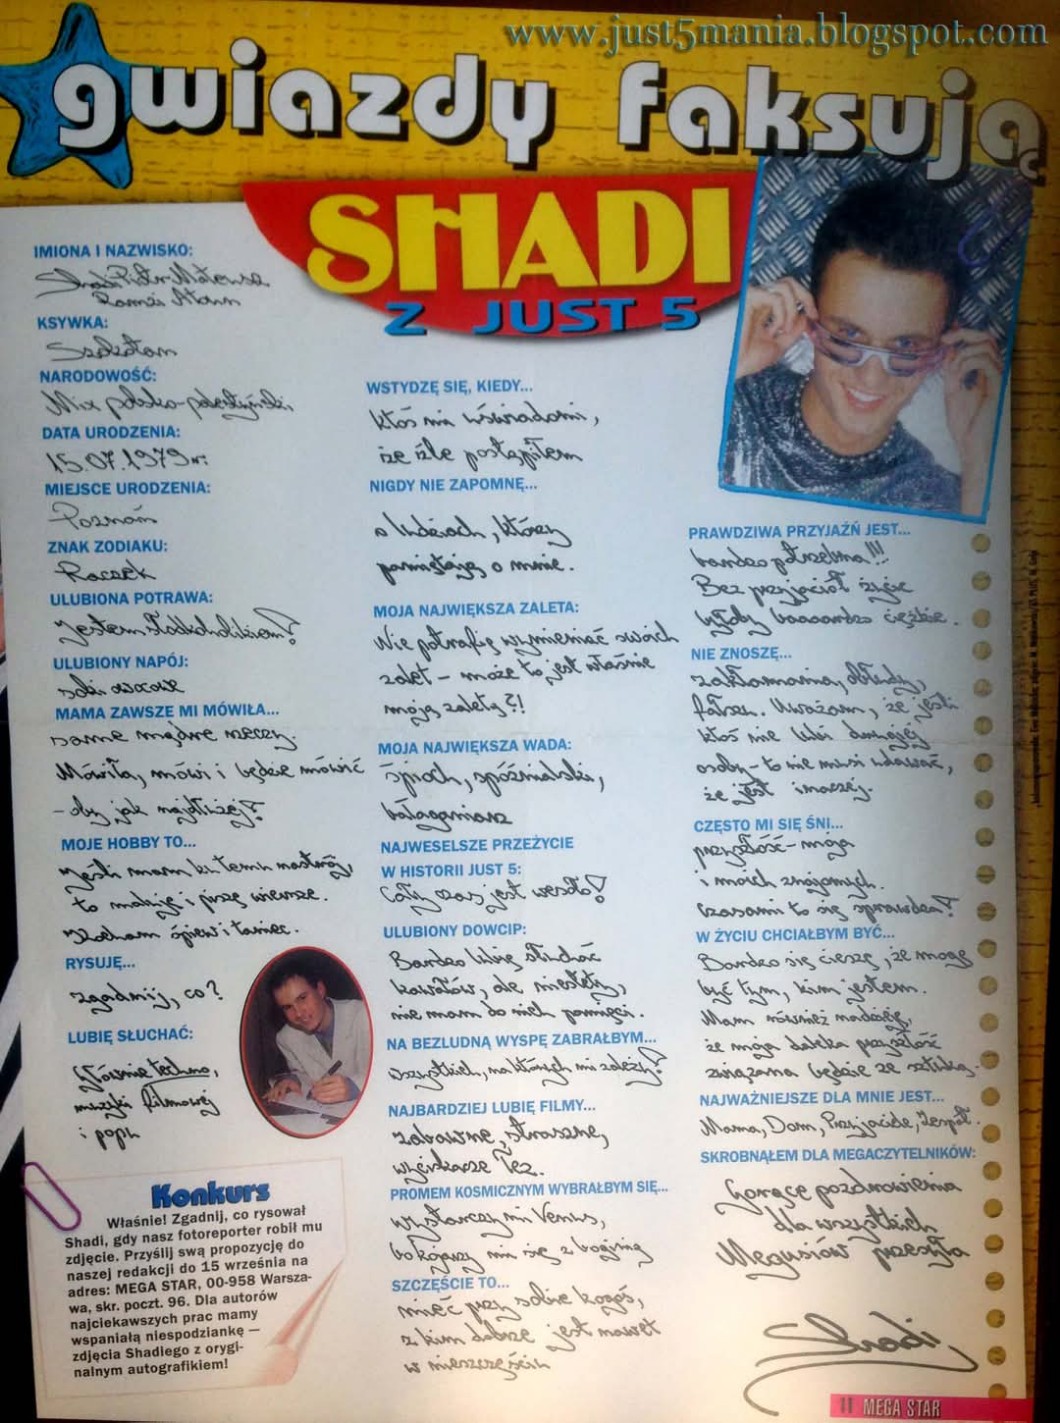 www.just5mania.blogspot.com
gwiazdy faksują
SHADI
Z JUST 5
IMIONA I NAZWISKO:
Shadi Piotr Mateusz
KSYWKA:
NARODOWOŚĆ:
Mix polsko-palestyński
DATA URODZENIA:
15.07.1979r.
MIEJSCE URODZENIA:
Poznań
ZNAK ZODIAKU:
Raczek
ULUBIONA POTRAWA:
Jestem słodkoholikiem!
ULUBIONY NAPÓJ:
soki owocowe
MAMA ZAWSZE MI MÓWIŁA...
same mądre rzeczy.
Mówiła, mówi i będzie mówić
- oby jak najdłużej!
MOJE HOBBY TO...
Jeśli mam ku temu nastrój,
to maluję i piszę wiersze.
Kocham śpiew i taniec.
RYSUJĘ...
zgadnij, co?
LUBIĘ SŁUCHAĆ:
Głównie techno,
muzyki filmowej
i popu
Konkurs
Właśnie! Zgadnij, co rysował
Shadi, gdy nasz fotoreporter robił mu
zdjęcie. Przyślij swą propozycję do
naszej redakcji do 15 września na
adres: MEGA STAR, 00-958 Warsza-
wa, skr. poczt. 96. Dla autorów
najciekawszych prac mamy
wspaniałą niespodziankę —
zdjęcia Shadiego z orygi-
nalnym autografikiem!
WSTYDZĘ SIĘ, KIEDY...
ktoś mi uświadomi,
że źle postąpiłem
NIGDY NIE ZAPOMNĘ...
o ludziach, którzy
pamiętają o mnie.
MOJA NAJWIĘKSZA ZALETA:
Nie potrafię wymieniać swoich
zalet - może to jest właśnie
moją zaletą?!
MOJA NAJWIĘKSZA WADA:
śpioch, spóźnialski,
bałaganiarz
NAJWESELSZE PRZEŻYCIE
W HISTORII JUST 5:
Cały czas jest wesoło!
ULUBIONY DOWCIP:
Bardzo lubię słuchać
kawałów, ale niestety,
nie mam do nich pamięci.
NA BEZLUDNĄ WYSPĘ ZABRAŁBYM...
wszystkich, na których mi zależy!
NAJBARDZIEJ LUBIĘ FILMY...
zabawne, straszne,
wyciskacze łez.
PROMEM KOSMICZNYM WYBRAŁBYM SIĘ...
wystarczy mi Venus,
bo kojarzy mi się z boginią
SZCZĘŚCIE TO...
mieć przy sobie kogoś,
z kim dobrze jest nawet
w nieszczęściu
PRAWDZIWA PRZYJAŹŃ JEST...
bardzo potrzebna!!!
Bez przyjaciół życie
byłoby baaaardzo ciężkie.
NIE ZNOSZĘ...
zakłamania, obłudy,
fałszu. Uważam, że jeśli
ktoś nie lubi drugiej
osoby - to nie musi udawać,
że jest inaczej.
CZĘSTO MI SIĘ ŚNI...
przyszłość - moja
i moich znajomych.
Czasami to się sprawdza!
W ŻYCIU CHCIAŁBYM BYĆ...
Bardzo się cieszę, że mogę
być tym, kim jestem.
Mam również nadzieję,
że moja daleka przyszłość
związana będzie ze sztuką.
NAJWAŻNIEJSZE DLA MNIE JEST...
Mama, Dom, Przyjaciele, Zespół.
SKROBNĄŁEM DLA MEGACZYTELNIKÓW:
Gorące pozdrowienia
dla wszystkich
Megusiów przesyła
Shadi
11 MEGA STAR